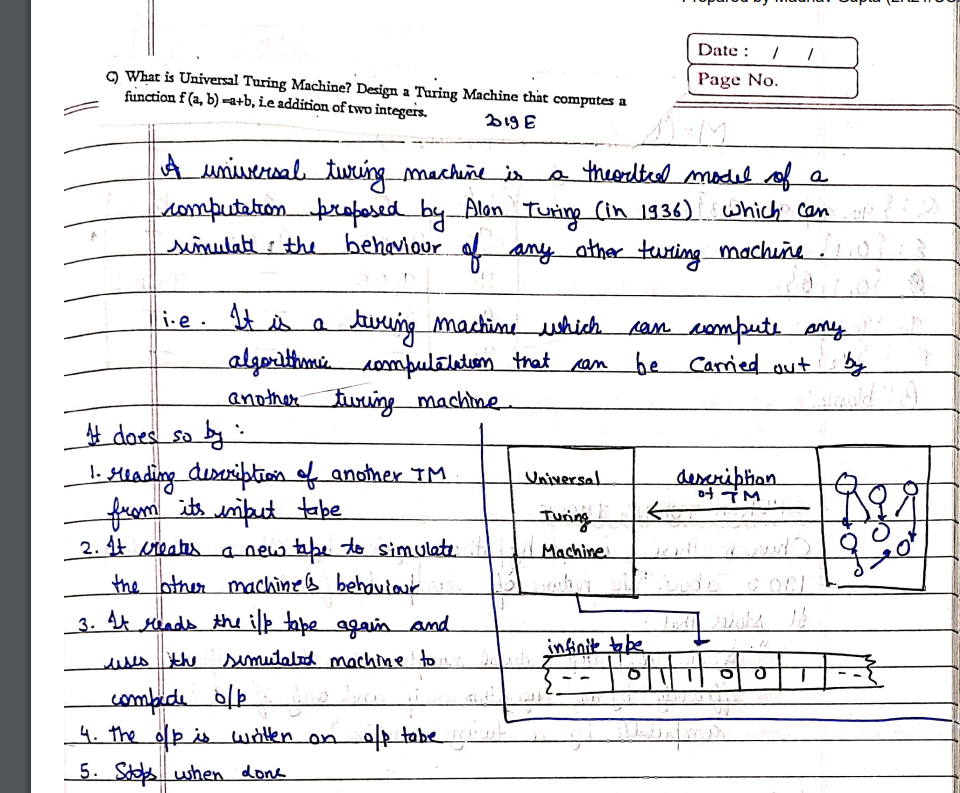 Date : / /
Page No.
C) What is Universal Turing Machine? Design a Turing Machine that computes a
function f (a, b) =a+b, i.e addition of two integers.
2019 E
A universal turing machine is a theoritcal model of a
computation proposed by Alan Turing (in 1936) which can
simulate the behaviour of any other turing machine .
i.e . It is a turing machine which can compute any
algorithmic compulatation that can be carried out by
another turing machine .
It does so by :
1. reading description of another TM
from its input tape
2. It creates a new tape to simulate
the other machine's behaviour
3. It reads the i/p tape again and
uses the simulated machine to
compute o/p
4. The o/p is written on o/p tape
5. Stops when done
Universal
Turing
Machine
description
of TM
infinite tape
-- 0 1 1 0 0 1 --